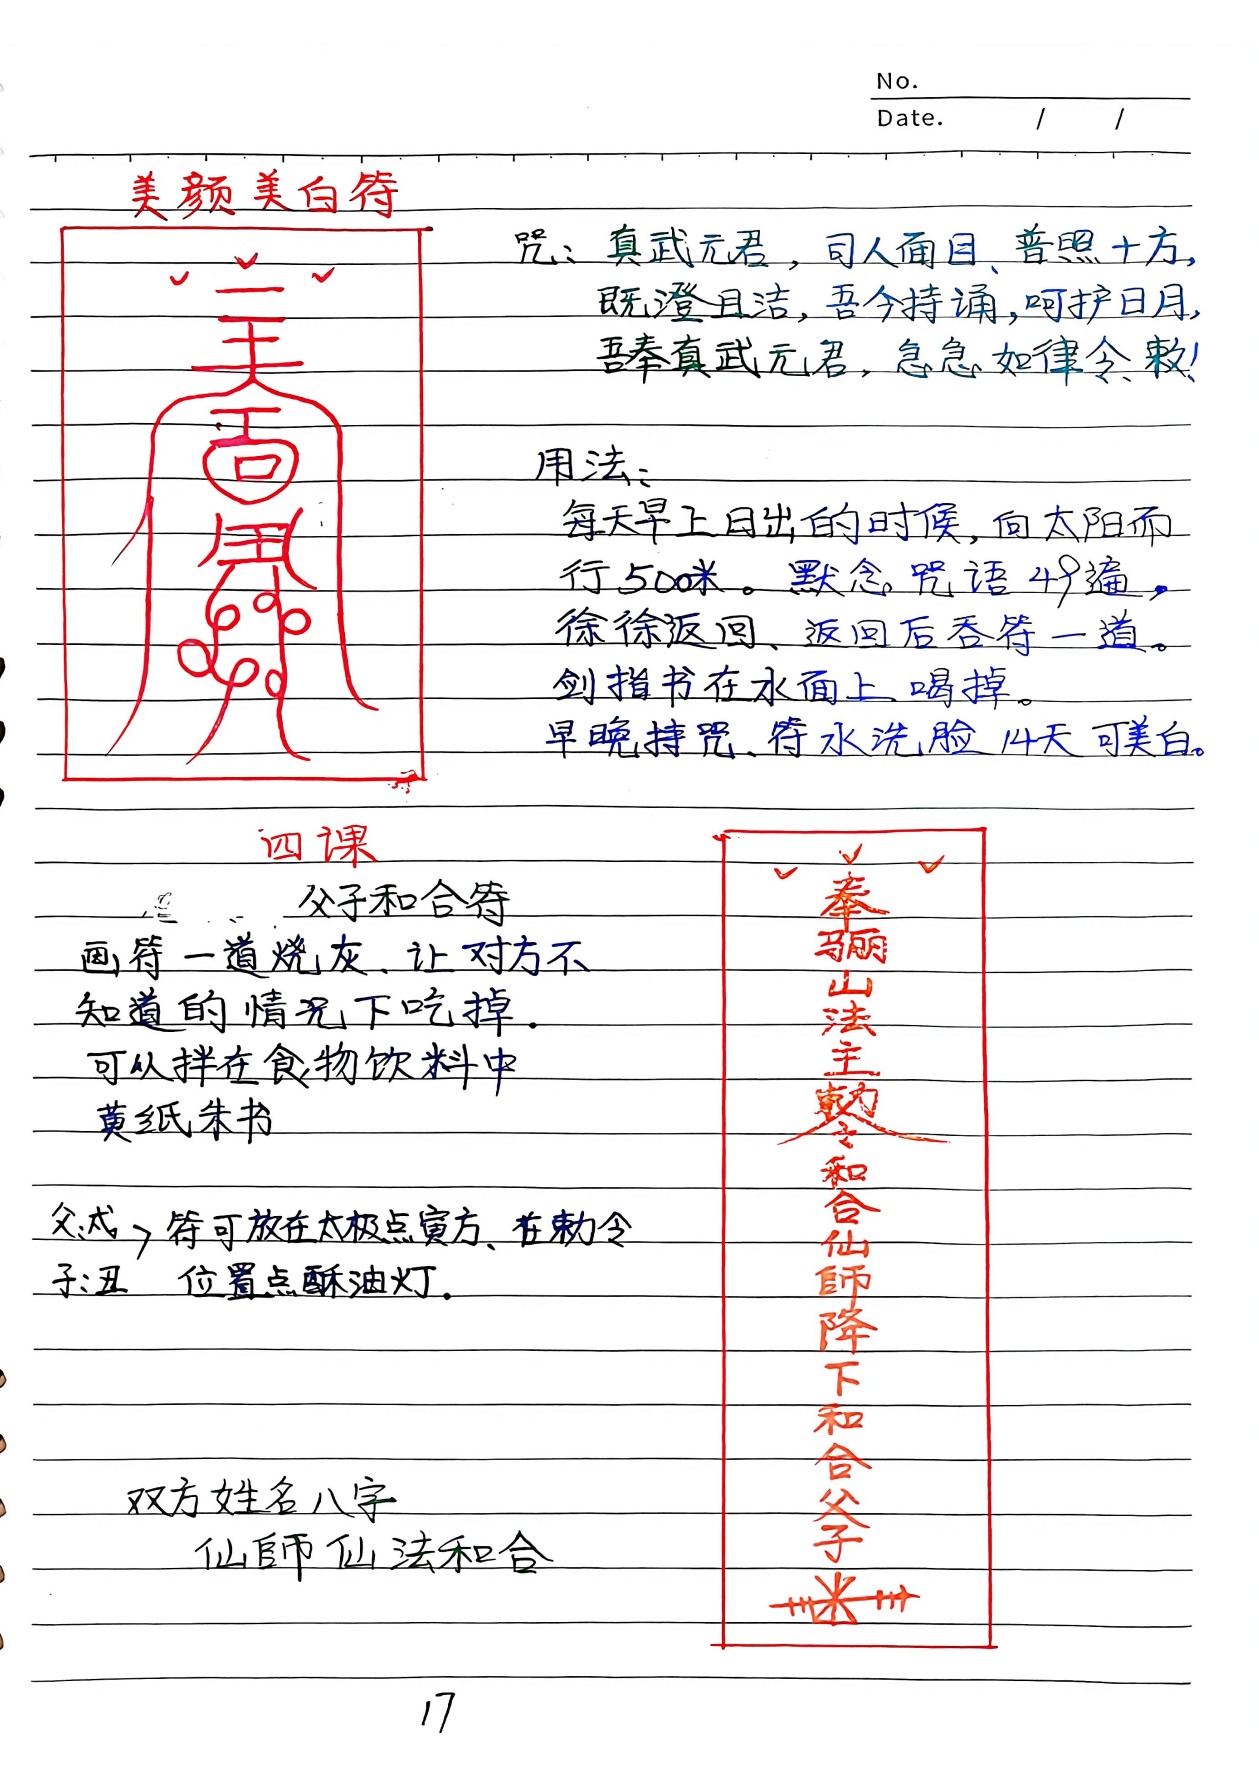 No.
Date. / /
美颜美白符
咒：真武元君，司人面目、普照十方，
既澄且洁，吾今持诵，呵护日月，
吾奉真武元君，急急如律令、敕！
用法：
每天早上日出的时候，向太阳而
行500米。默念咒语49遍，
徐徐返回、返回后吞符一道。
剑指书在水面上、喝掉。
早晚持咒、符水洗脸14天可美白。
四课
父子和合符
画符一道烧灰、让对方不
知道的情况下吃掉.
可以拌在食物饮料中
黄纸朱书
父:戌 > 符可放在太极点寅方、在勅令
子:丑 位置点酥油灯.
双方姓名八字
仙師仙法和合
奉
骊
山
法
主
勅
令
和
合
仙
師
降
下
和
合
父
子
17